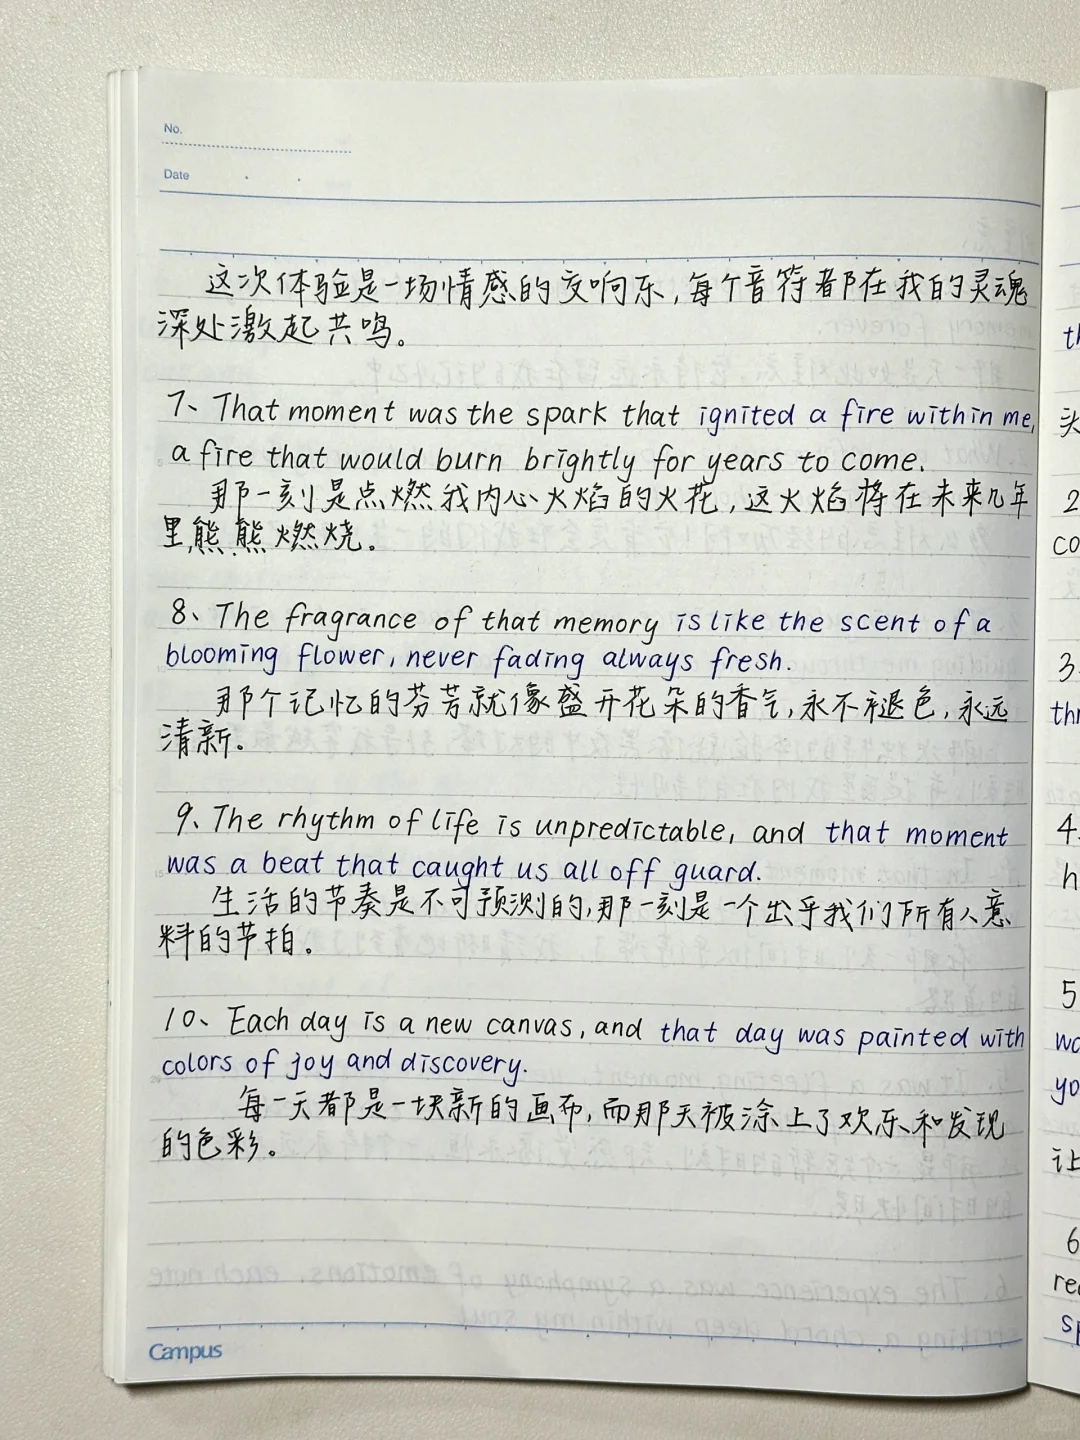 No.
Date
这次体验是一场情感的交响乐,每个音符都在我的灵魂
深处激起共鸣。
7、That moment was the spark that ignited a fire within me,
a fire that would burn brightly for years to come.
那一刻是点燃我内心火焰的火花,这火焰将在未来几年
里,熊熊燃烧。
8、The fragrance of that memory is like the scent of a
blooming flower, never fading always fresh.
那个记忆的芬芳就像盛开花朵的香气,永不褪色,永远
清新。
9、The rhythm of life is unpredictable, and that moment
was a beat that caught us all off guard.
生活的节奏是不可预测的,那一刻是一个出乎我们所有人意
料的节拍。
10、Each day is a new canvas, and that day was painted with
colors of joy and discovery.
每一天都是一块新的画布,而那天被涂上了欢乐和发现
的色彩。
Campus
th
头
2
co
3
thr
4
h
5
wo
yo
让
6
rea
sp